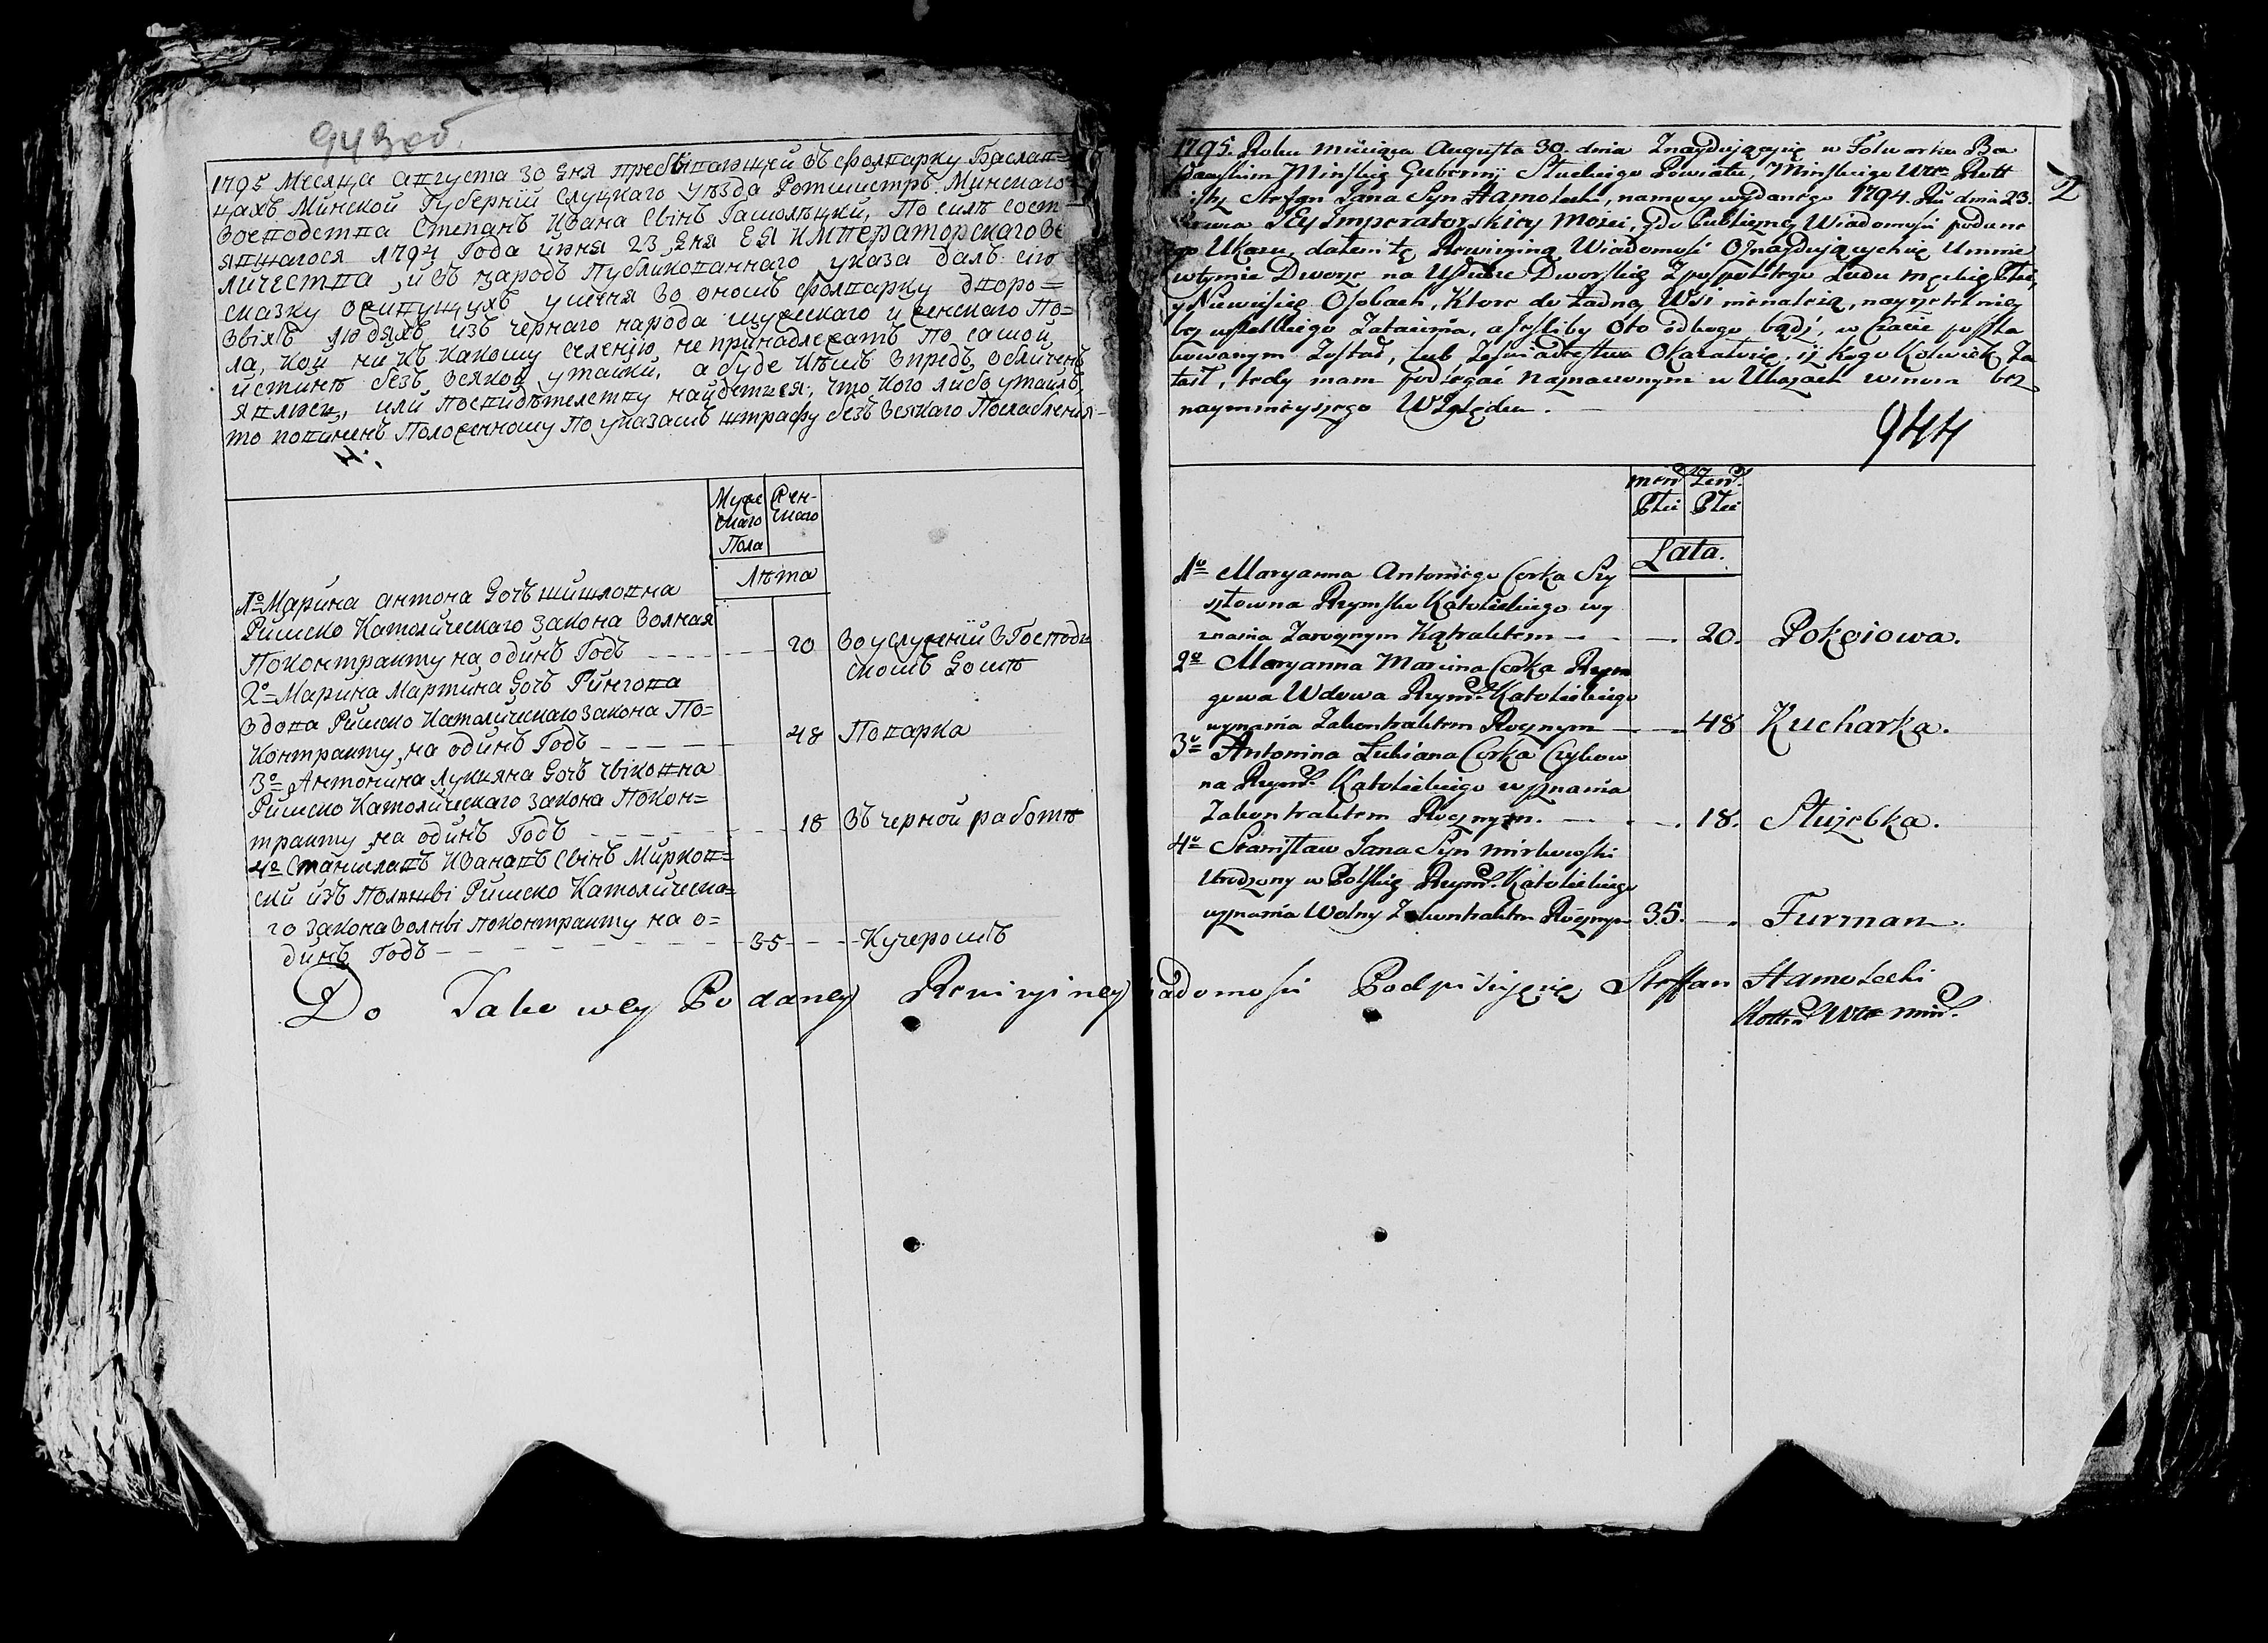 943 об
1795 Месяца августа 30 дня пребывающий въ фолварку Баслав=
цахъ Минской Губернїи Слуцкаго уѣзда Ротмистръ Минскаго
воеводства Степанъ Ивана Сынъ Гамолѣцки, По силѣ сост=
явшагося 1794 Года июня 23 дня ЕЯ ИМПЕРАТОРСКАГО ВЕ
личества, и въ народъ Публикованнаго указа далъ сїю
сказку о живущихъ у меня во ономъ фолварку дворо=
выхъ людяхъ изъ чернаго народа мужескаго и женскаго По=
ла, кои ни къ какому селенїю не принадлежатъ По самой
истиннѣ безъ всякой утайки, а буде кѣмъ впредь обличенъ
явлюсь, или посвидѣтелству найдется, что кого либо утаилъ,
то повиненъ Положенному По указамъ штрафу безъ всякаго Послабления
Муже
скаго
Пола
Жен-
скаго
Лѣта
1º Марина антона дочь шишловна
Римско Католическаго закона волная
Поконтракту на одинъ Годъ - - - 20 во услуженїи в Господ
скомъ домѣ
2º Марина Мартина дочь Рингова
вдова Римско Католическаго закона По=
контракту на одинъ Годъ - - - 48 Поварка
3º Антонина лукияна дочь чыковна
Римско Католическаго закона Покон=
тракту на одинъ Годъ - - - 18 въ черной работѣ
4º Станиславъ Ивановъ сынъ Мирков=
ски изъ Полшы Римско Католическа=
го закона волны поконтракту на о=
динъ Годъ - - - 35 - - - Кучеромъ
Do Takowey Podaney Rewizyiney
2
1795. Roku Miesiąca Augusta 30. dnia Znayduiącysię w Folwarku Ba
sławskim Minskiey Gubernij Słuckiego Powiatu, Minskiego Wtwa Rott
istrz Stefan Jana Syn Hamolecki, namocy wydanego 1794. Ru dnia 23.
Jey Imperatorskiey Mości, y do Publiczney Wiadomości podane
go Ukazu, dałem tę Rewizyiną Wiadomość Oznayduiącychsię Umnie
wtymże Dworze na Usłudze Dworskiey Zpospolitego Ludu męskiey Płci,
y Niewieściey Osobach, Ktore do żadney Wsi nienależą, nayrzetelniey
bez wszelkiego Zataienia, a Jesliby Oto odkogo bądź, w Czasie poszla
kowanym Został, lub Zeświadectwa Okazałosię, iż kogo Kolwiek Za
taił, tedy mam podlegać Naznaczonym w Ukazach winom bez
naymnieyszego Względu.
944
męs
Płci
Żeń.
Płci
Lata.
1º Maryanna Antoniego Corka Szy
szłowna Rzymsko Katolickiego wy
znania Zarocznym Kątraktem - - - 20. Pokoiowa.
2º Maryanna Marcina Corka Ryn
gowa Wdowa Rzyms. Katolickiego
wyznania Zakontraktem Rocznym - - 48 Kucharka.
3º Antonina Łukiana Corka Czykow
na Rzyms. Katolickiego wyznania
Zakontraktem Rocznym. - - - 18. Służebka.
4º Stanisław Jana Syn Mirkowski
Urodzony w Polskiey Rzyms. Katolickiego
wyznania Wolny Zakontraktem Rocznym 35. - Furman.
adomości Podpisuięsię Steffan Hamolecki
Rottm Wtwa Min.